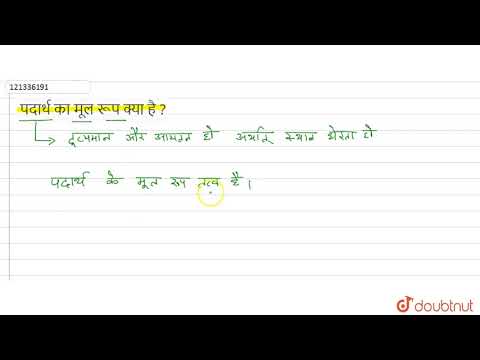 121336191
पदार्थ का मूल रूप क्या है ?
द्रव्यमान और आयतन हो अर्थात् स्थान घेरता हो
पदार्थ के मूल रूप तत्व है।
doubtnut